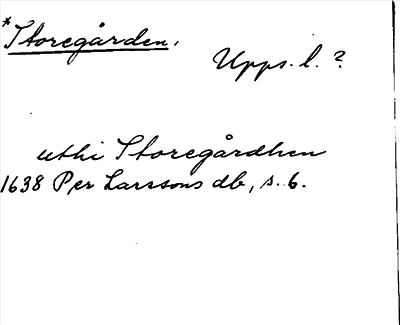 *Storegården.
Upps. l. ?
uthi Storegårdhen
1638 Per Larssons db, s. 6.